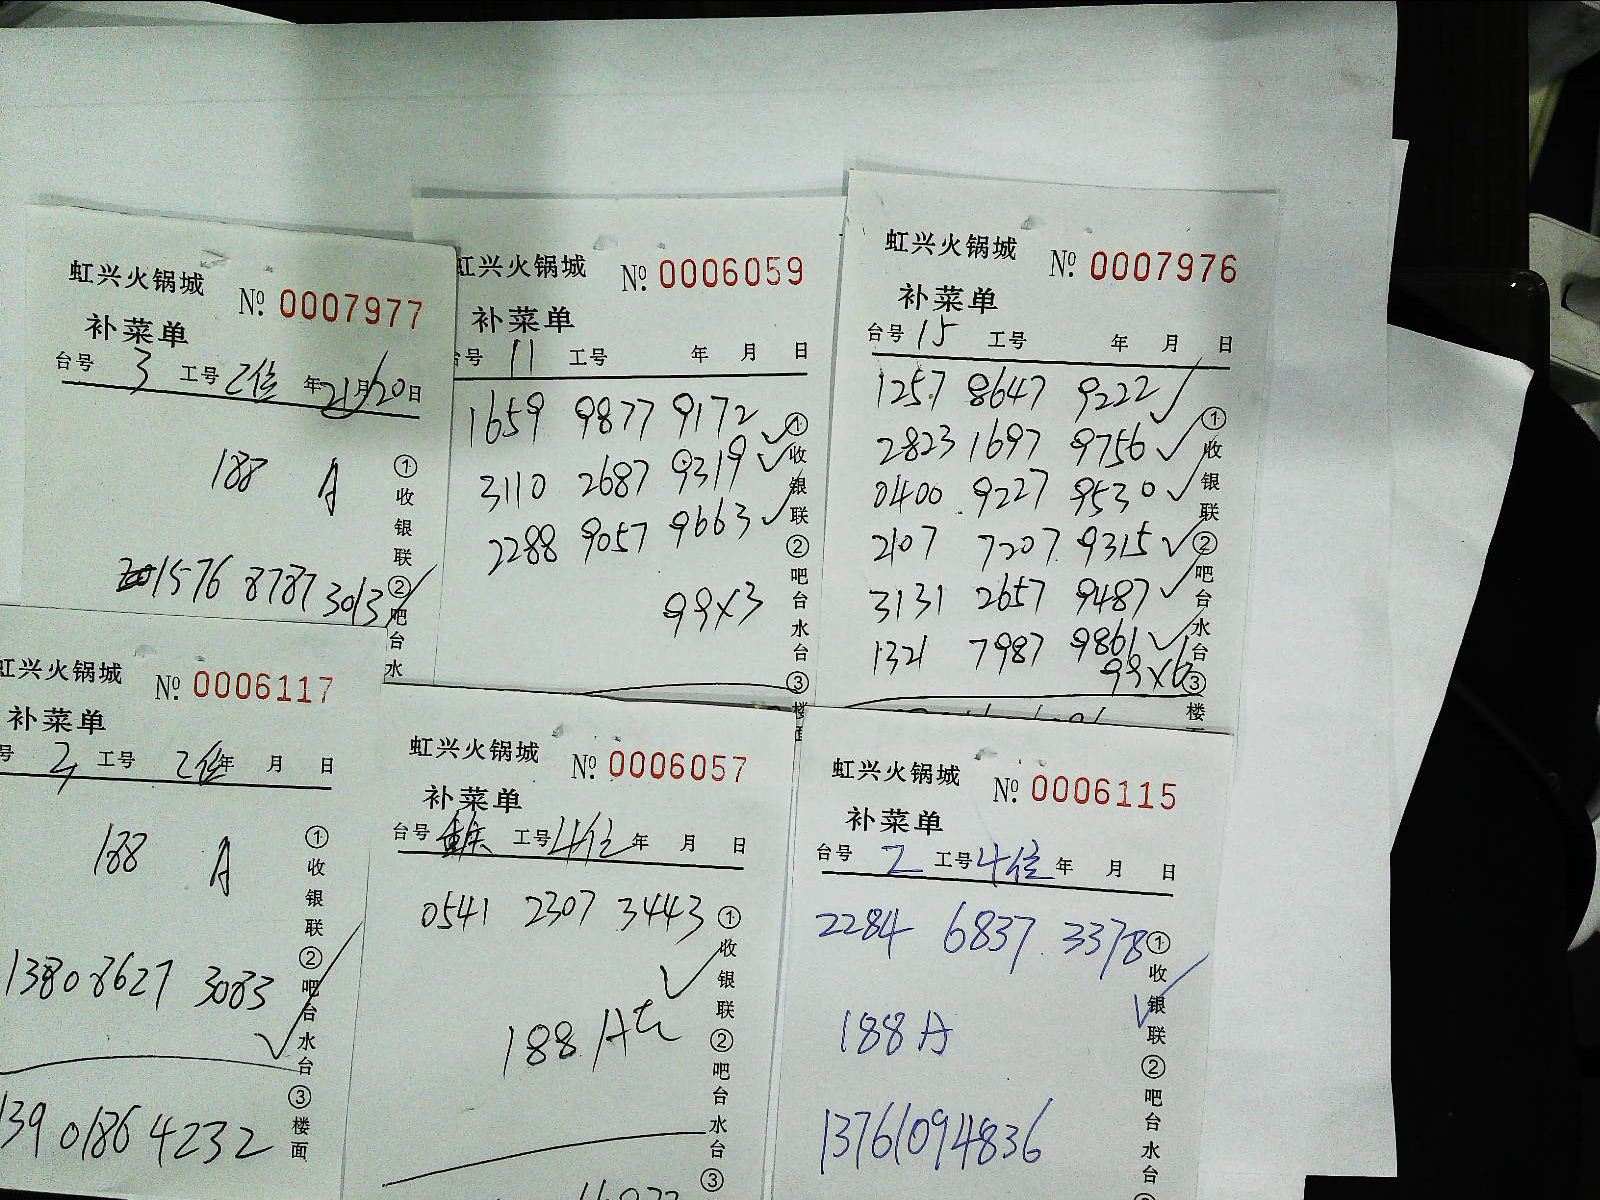 虹兴火锅城 №. 0007977
补菜单
台号 3 工号 2位 年21月20日
188 A
1576 8787 3013
①收银联②吧台水
虹兴火锅城 №. 0006059
补菜单
台号 11 工号 年 月 日
1659 9877 9172
3110 2687 9319
2288 9057 9663
99x3
①收银联②吧台水台③楼面
虹兴火锅城 №. 0007976
补菜单
台号 15 工号 年 月 日
1257 8647 9222
2823 1697 9756
0400 9227 9530
2107 7207 9315
3131 2657 9487
1321 7987 9861
99x6
①收银联②吧台水台③楼
虹兴火锅城 №. 0006117
补菜单
号 2 工号 2位 年 月 日
188 A
1380 8627 3083
139 01864232
①收银联②吧台水台③楼面
虹兴火锅城 №. 0006057
补菜单
台号 重庆 工号 4位 年 月 日
0541 2307 3443
188 A
①收银联②吧台水台③
虹兴火锅城 №. 0006115
补菜单
台号 2 工号 4位 年 月 日
2284 6837 3378
188 A
13761094836
①收银联②吧台水台